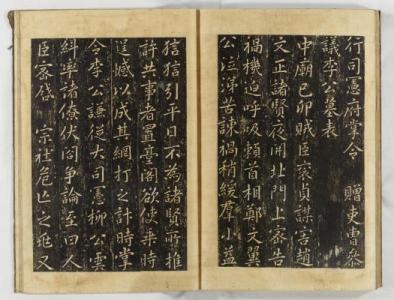 行司憲府掌令 贈吏曹參
議李公墓表
中廟己卯賊臣袞貞謀害趙
文正諸賢夜開北門上密告
禍機迫呼吸賴首相鄭文翼
公泣涕苦諫禍稍緩羣小益
狺狺引平日不為諸賢所推
許共事者置臺閣欲使乘時
逞憾以成其網打之計時掌
令李公謙從大司憲柳公雲
糾率諸僚伏閤爭論至曰人
臣密啓 宗社危亡之兆又